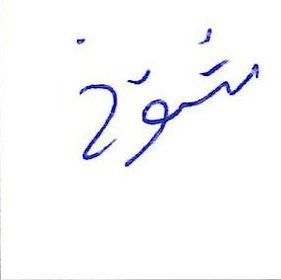 شوخ